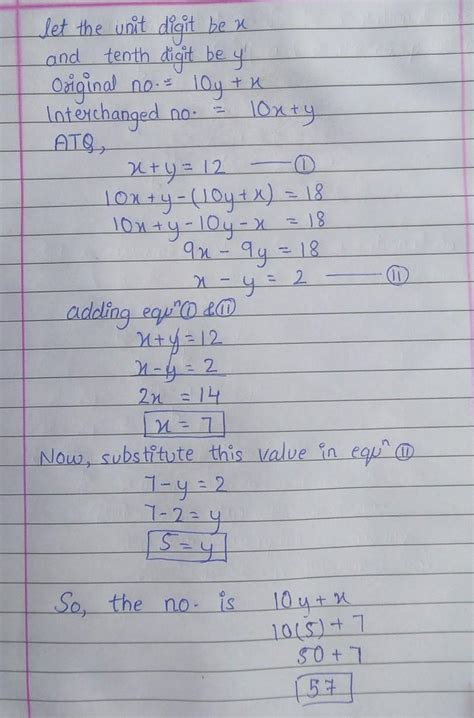 let the unit digit be x
and tenth digit be y
Original no. = 10y + x
Interchanged no. = 10x + y
ATQ,
x + y = 12 —— ①
10x + y - (10y + x) = 18
10x + y - 10y - x = 18
9x - 9y = 18
x - y = 2 —— ⑪
adding equⁿ ① & ⑪
x + y = 12
x - y = 2
2x = 14
x = 7
Now, substitute this value in equⁿ ⑪
7 - y = 2
7 - 2 = y
5 = y
So, the no. is 10y + x
10(5) + 7
50 + 7
57